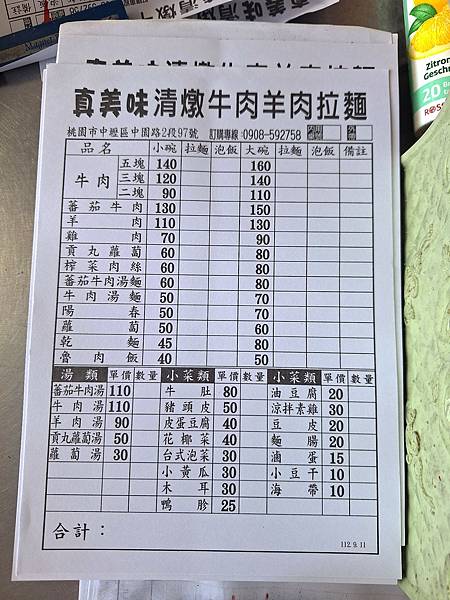 真美味清燉牛肉羊肉拉麵
桃園市中壢區中園路2段97號 訂購專線:0908-592758
品名 小碗 拉麵 泡飯 大碗 拉麵 泡飯 備註
牛肉 五塊 140 160
三塊 120 140
二塊 90 110
蕃茄牛肉 130 150
羊肉 110 130
雞肉 70 90
貢丸蘿蔔 60 80
榨菜肉絲 60 80
蕃茄牛肉湯麵 60 80
牛肉湯麵 50 70
陽春 50 70
蘿蔔 50 60
乾麵 45 80
魯肉飯 40 50
湯類 單價 數量 小菜類 單價 數量 小菜類 單價 數量
蕃茄牛肉湯 110 牛肚 80 油豆腐 20
牛肉湯 110 豬頭皮 50 涼拌素雞 30
羊肉湯 90 皮蛋豆腐 40 豆皮 20
貢丸蘿蔔湯 50 花椰菜 40 麵腸 20
蘿蔔湯 30 台式泡菜 30 滷蛋 15
小黃瓜 30 小豆干 10
木耳 30 海帶 10
鴨胗 25
合計：
112.9.11
Zitron
Geschm
20